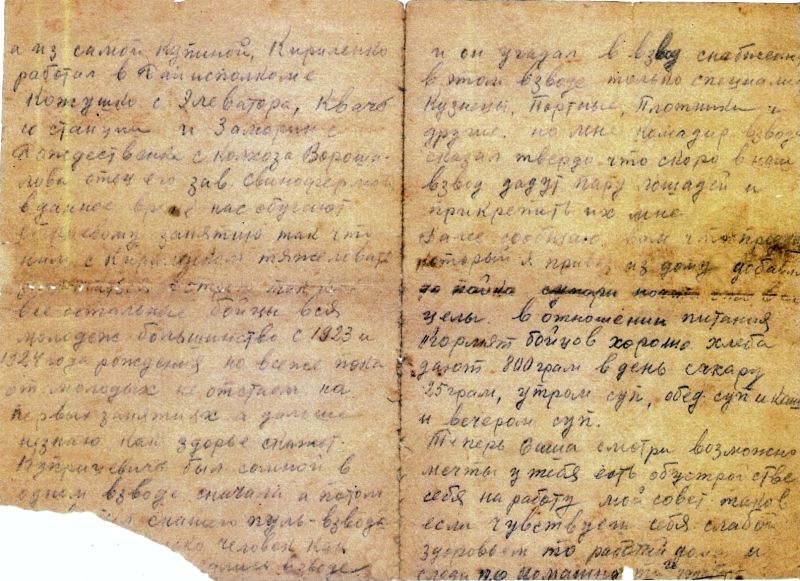 а из самой купиной, Кириленко
работал в Райисполкоме
Кожушко с Элеватора, Квачь
со станции и Заморин с
Рождественки с колхоза Вороши-
лова отец его зав. свинофермой
в данное время нас обучают
строевому занятию так что
нам с Кириленком тяжеловато
все остальные бойцы вся
молодеж большинство с 1923 и
1924 года рождения но всеже пока
от молодых не отстаем на
первых занятиях а дальше
незнаю как здоровье скажет.
Куприцевичь был сомной в
одном взводе сначала а потом
пуль-взвода
человек как
взводе
и он угадал в взвод снабжения
в этом взводе только специали
Кузнецы, Портные, Плотники и
другие. но мне командир взвода
сказал твердо что скоро в наш
взвод дадут пару лошадей и
прикрепить их мне
Далее сообщаю Вам что
который я привез из дому добавля
до пайка сухари
целы. в отношении питания
кормят бойцов хорошо хлеба
дают 800 грам в день сахару
25 грам, утром суп, обед суп и каша
и вечером суп.
Теперь Саша смотри возможно
мечты у тебя есть обустройстве
себя на работу мой совет таков
если чувствуеш себя слабой
здоровьем то работай дома и
следи по